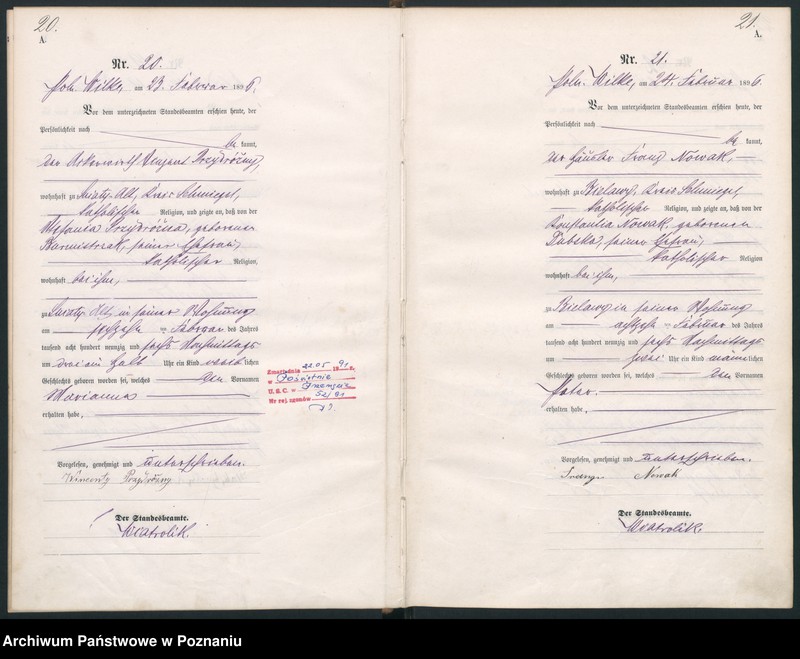 20.
A.
Nr. 20.
Poln. Wilke, am 23. Februar 1896.
Vor dem unterzeichneten Standesbeamten erschien heute, der
Persönlichkeit nach
be kannt,
der Ackerwirth
wohnhaft zu Alt, Kreis Schmiegel,
katholischer Religion, und zeigte an, daß von der
geborenen
seiner Ehefrau,
katholischer Religion
wohnhaft bei ihm,
zu Alt, in seiner Wohnung
am sechszehn ten Februar des Jahres
tausend acht hundert neunzig und sechs Nachmittags
um drei ein halb Uhr ein Kind weib lichen
Geschlechts geboren worden sei, welches den Vornamen
Marianna
erhalten habe,
Vorgelesen, genehmigt und unterschrieben.
Wincenty Przydróżny
Der Standesbeamte.
Wiatrolik.
Zmarł dnia 22.05 1991 r.
w
U. S. C.
Nr rej. zgonów 52/91
21.
A.
Nr. 21.
Poln. Wilke, am 24. Februar 1896.
Vor dem unterzeichneten Standesbeamten erschien heute, der
Persönlichkeit nach
be kannt,
der Häusler Franz Nowak,
wohnhaft zu Bielawy, Kreis Schmiegel,
katholischer Religion, und zeigte an, daß von der
Konstantia Nowak, geborenen
seiner Ehefrau,
katholischer Religion
wohnhaft bei ihm,
zu Bielawy in seiner Wohnung
am ten Februar des Jahres
tausend acht hundert neunzig und sechs Nachmittags
um zwei Uhr ein Kind männ lichen
Geschlechts geboren worden sei, welches den Vornamen
Peter
erhalten habe,
Vorgelesen, genehmigt und unterschrieben.
Nowak
Der Standesbeamte.
Wiatrolik.
Archiwum Państwowe w Poznaniu